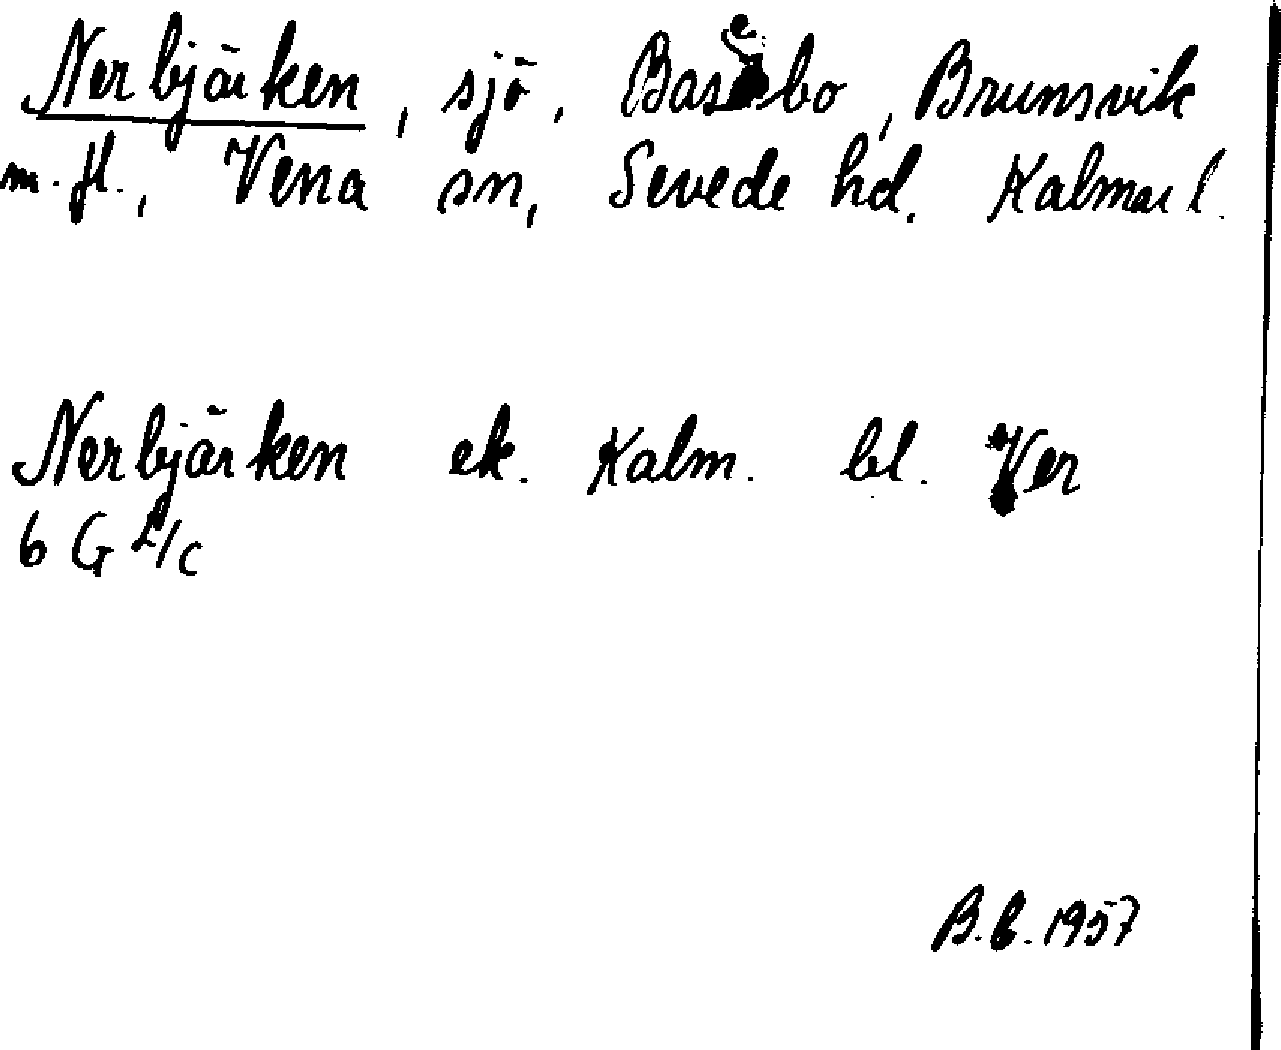 Nerbjärken, sjö, Basebo, Brunsvik
m.fl., Vena sn, Sevede hd. Kalmar l.
Nerbjärken ek. Kalm. bl. Ver
6 G /c
B.b. 1957